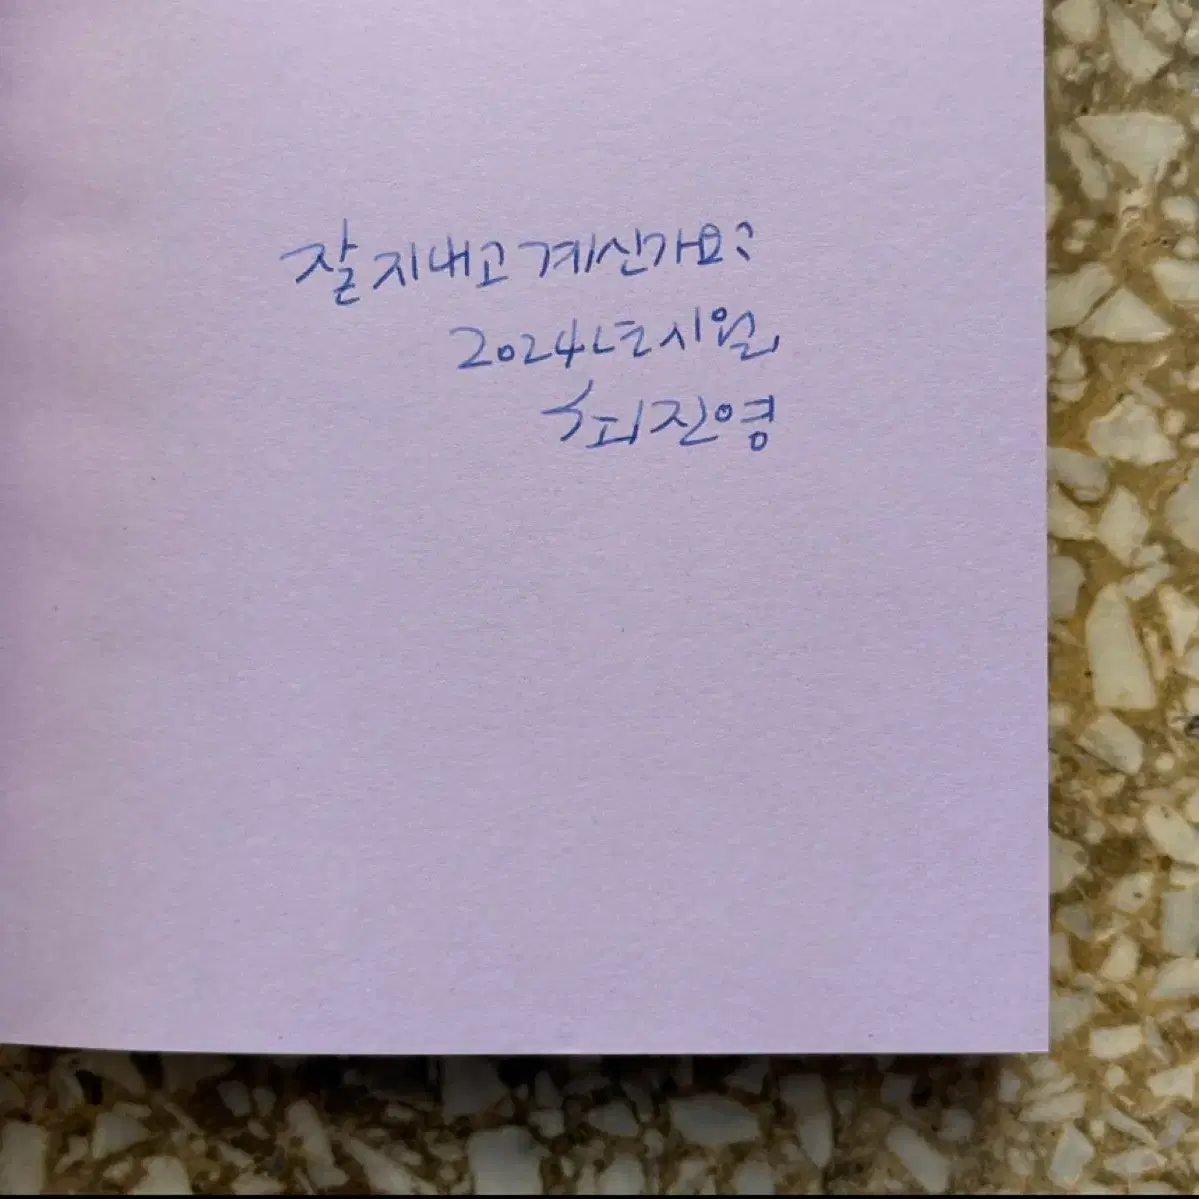 잘 지내고 계신가요?
2024년 시월,
최진영